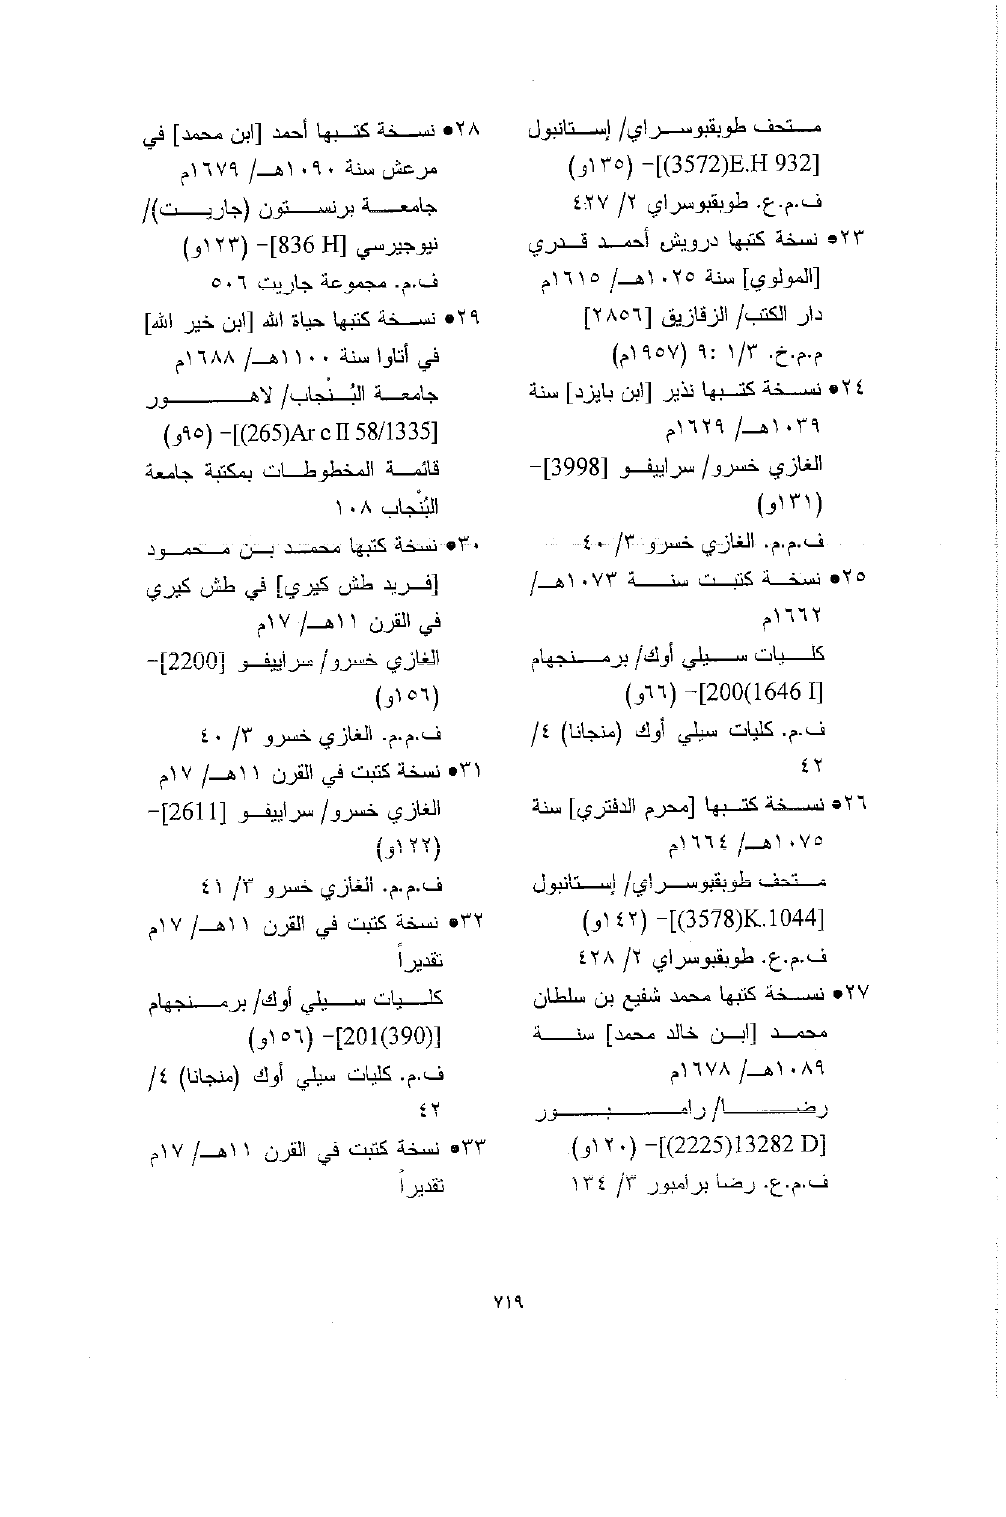 متحف طوبقبوسراي/ إستانبول
[3572)E.H 932)]- (١٣٥و)
ف.م.ع. طوبقبوسراي ٢/ ٤٢٧
٢٣• نسخة كتبها درويش أحمد قدري
[المولوي] سنة ١٠٢٥هـ/ ١٦١٥م
دار الكتب/ الزقازيق [٢٨٥٦]
م.م.خ. ١/٣ :٩ (١٩٥٧م)
٢٤• نسخة كتبها نذير [ابن بايزد] سنة
١٠٣٩هـ/ ١٦٢٩م
الغازي خسرو/ سراييفو [3998]-
(١٣١و)
ف.م.م. الغازي خسرو ٣/ ٤٠
٢٥• نسخة كتبت سنة ١٠٧٣هـ/
١٦٦٢م
كليات سيلي أوك/ برمنجهام
[200(1646 I]- (٦٦و)
ف.م. كليات سيلي أوك (منجانا) ٤/
٤٢
٢٦• نسخة كتبها [محرم الدفتري] سنة
١٠٧٥هـ/ ١٦٦٤م
متحف طوبقبوسراي/ إستانبول
[3578)K.1044)]- (١٤٢و)
ف.م.ع. طوبقبوسراي ٢/ ٤٢٨
٢٧• نسخة كتبها محمد شفيع بن سلطان
محمد [ابن خالد محمد] سنة
١٠٨٩هـ/ ١٦٧٨م
رضا/ رامبور
[2225)13282 D)]- (١٢٠و)
ف.م.ع. رضا برامبور ٣/ ١٣٤
٢٨• نسخة كتبها أحمد [ابن محمد] في
مرعش سنة ١٠٩٠هـ/ ١٦٧٩م
جامعة برنستون (جاريت)/
نيوجيرسي [836 H]- (١٢٣و)
ف.م. مجموعة جاريت ٥٠٦
٢٩• نسخة كتبها حياة الله [ابن خير الله]
في أناوا سنة ١١٠٠هـ/ ١٦٨٨م
جامعة البُنْجاب/ لاهور
[265)Ar c II 58/1335)]- (٩٥و)
قائمة المخطوطات بمكتبة جامعة
البُنْجاب ١٠٨
٣٠• نسخة كتبها محمد بن محمود
[فريد طش كيري] في طش كيري
في القرن ١١هـ/ ١٧م
الغازي خسرو/ سراييفو [2200]-
(١٥٦و)
ف.م.م. الغازي خسرو ٣/ ٤٠
٣١• نسخة كتبت في القرن ١١هـ/ ١٧م
الغازي خسرو/ سراييفو [2611]-
(١٢٢و)
ف.م.م. الغازي خسرو ٣/ ٤١
٣٢• نسخة كتبت في القرن ١١هـ/ ١٧م
تقديراً
كليات سيلي أوك/ برمنجهام
[201(390)]- (١٥٦و)
ف.م. كليات سيلي أوك (منجانا) ٤/
٤٢
٣٣• نسخة كتبت في القرن ١١هـ/ ١٧م
تقديراً
٧١٩